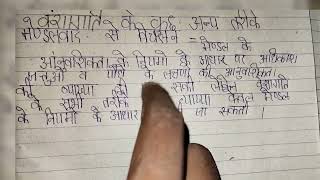 वंशागति के कुछ अन्य तरीके
मेण्डलवाद से विचलन = मेण्डल के
आनुवंशिकता के नियमों के आधार पर अधिकांश
जन्तुओं व के लक्षणों की आनुवंशिकता
की व्याख्या की सकी लेकिन वंशागति
के सभी तरीके व्याख्या केवल मेण्डल
के नियमों के आधार जा सकती